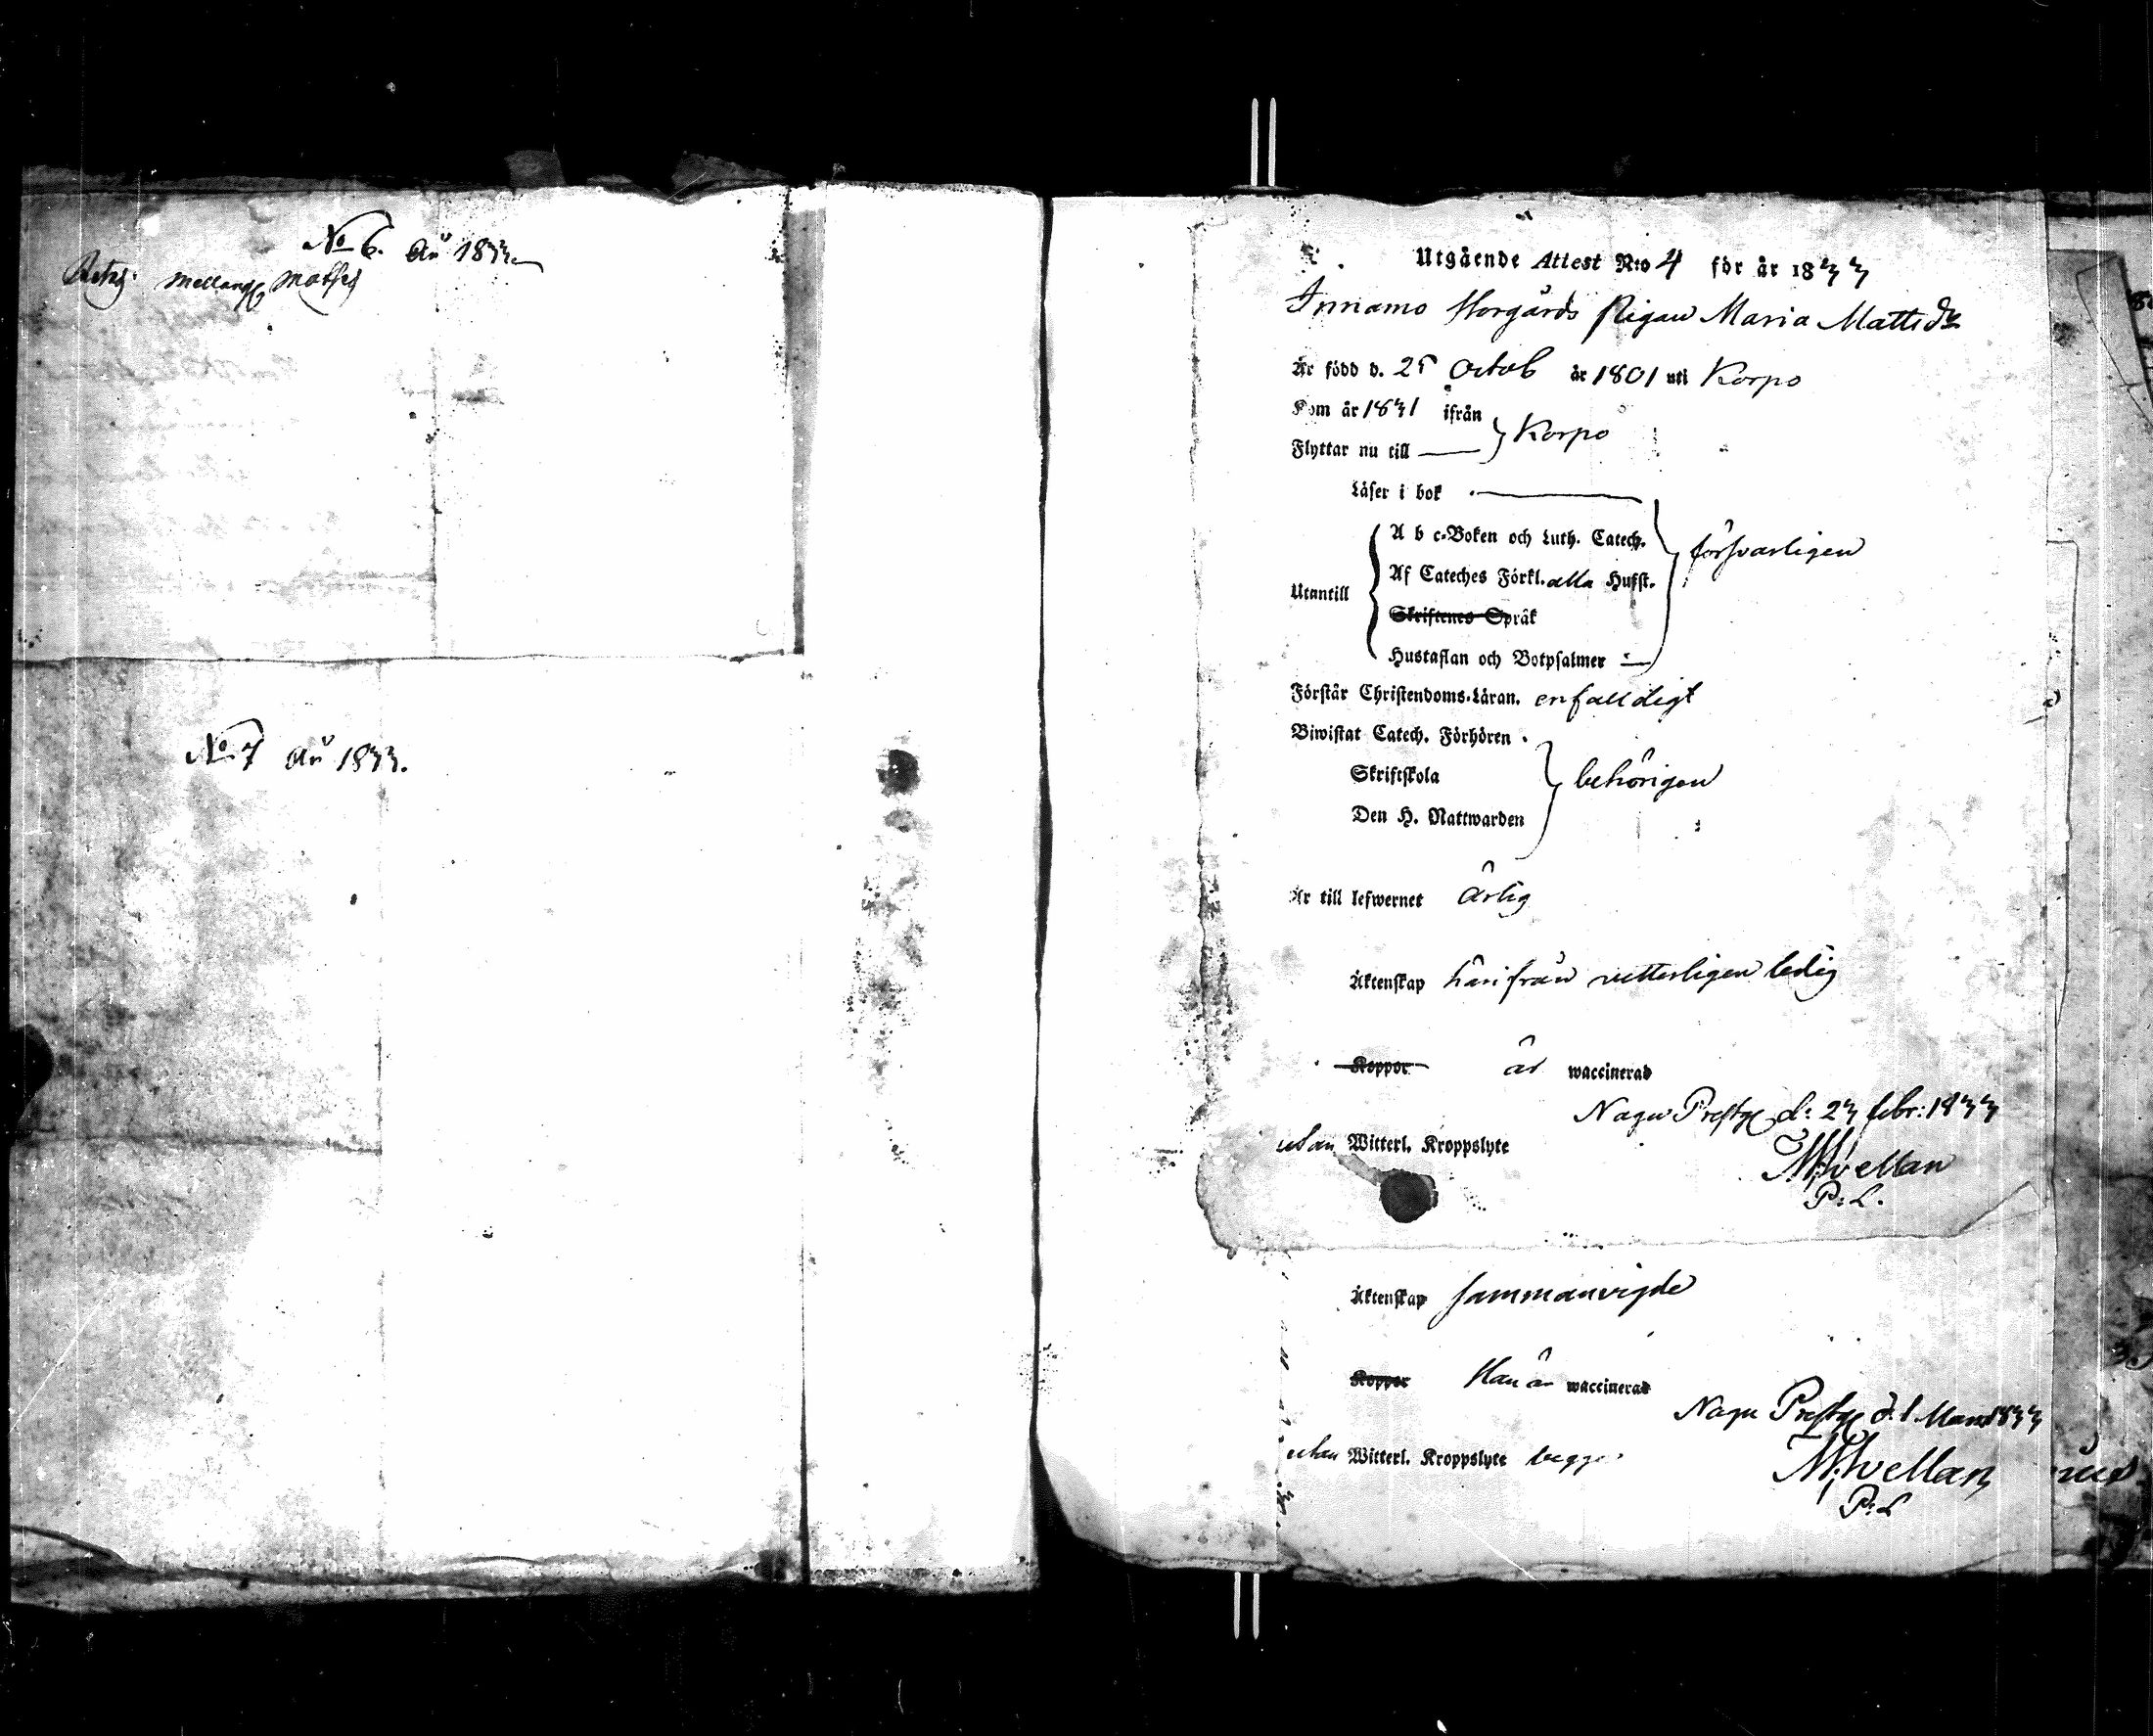 No 6. År 1833
Retz. mellang. Matts
No 7 År 1833.
Utgående Attest N:o 4 för år 1833
Innamo Norgårds Pigan Maria Mattsdr
Är född d. 25 Octob år 1801 uti Korpo
Kom år 1831 ifrån
Flyttar nu till Korpo
Läser i bok
A b c-Boken och Luth. Catech. försvarligen
Af Cateches Förkl. alla Hufst.
Utantill
Skriftenes Språk
Hustaflan och Botpsalmer
Förstår Christendoms-Läran. enfalldigt
Biwistat Catech. Förhören
Skriftskola behörigen
Den H. Nattwarden
Är till lefwernet ärlig
Äktenskap härifrån vetterligen ledig
Koppor är waccinerad
Nagu Prestg. d: 23 febr: 1833
utan Witterl. Kroppslyte
P: L.
Äktenskap sammanvigde
Koppor Han är waccinerad
Nagu Prestg. d. 1 Mars 1833
utan Witterl. Kroppslyte begge
P: L